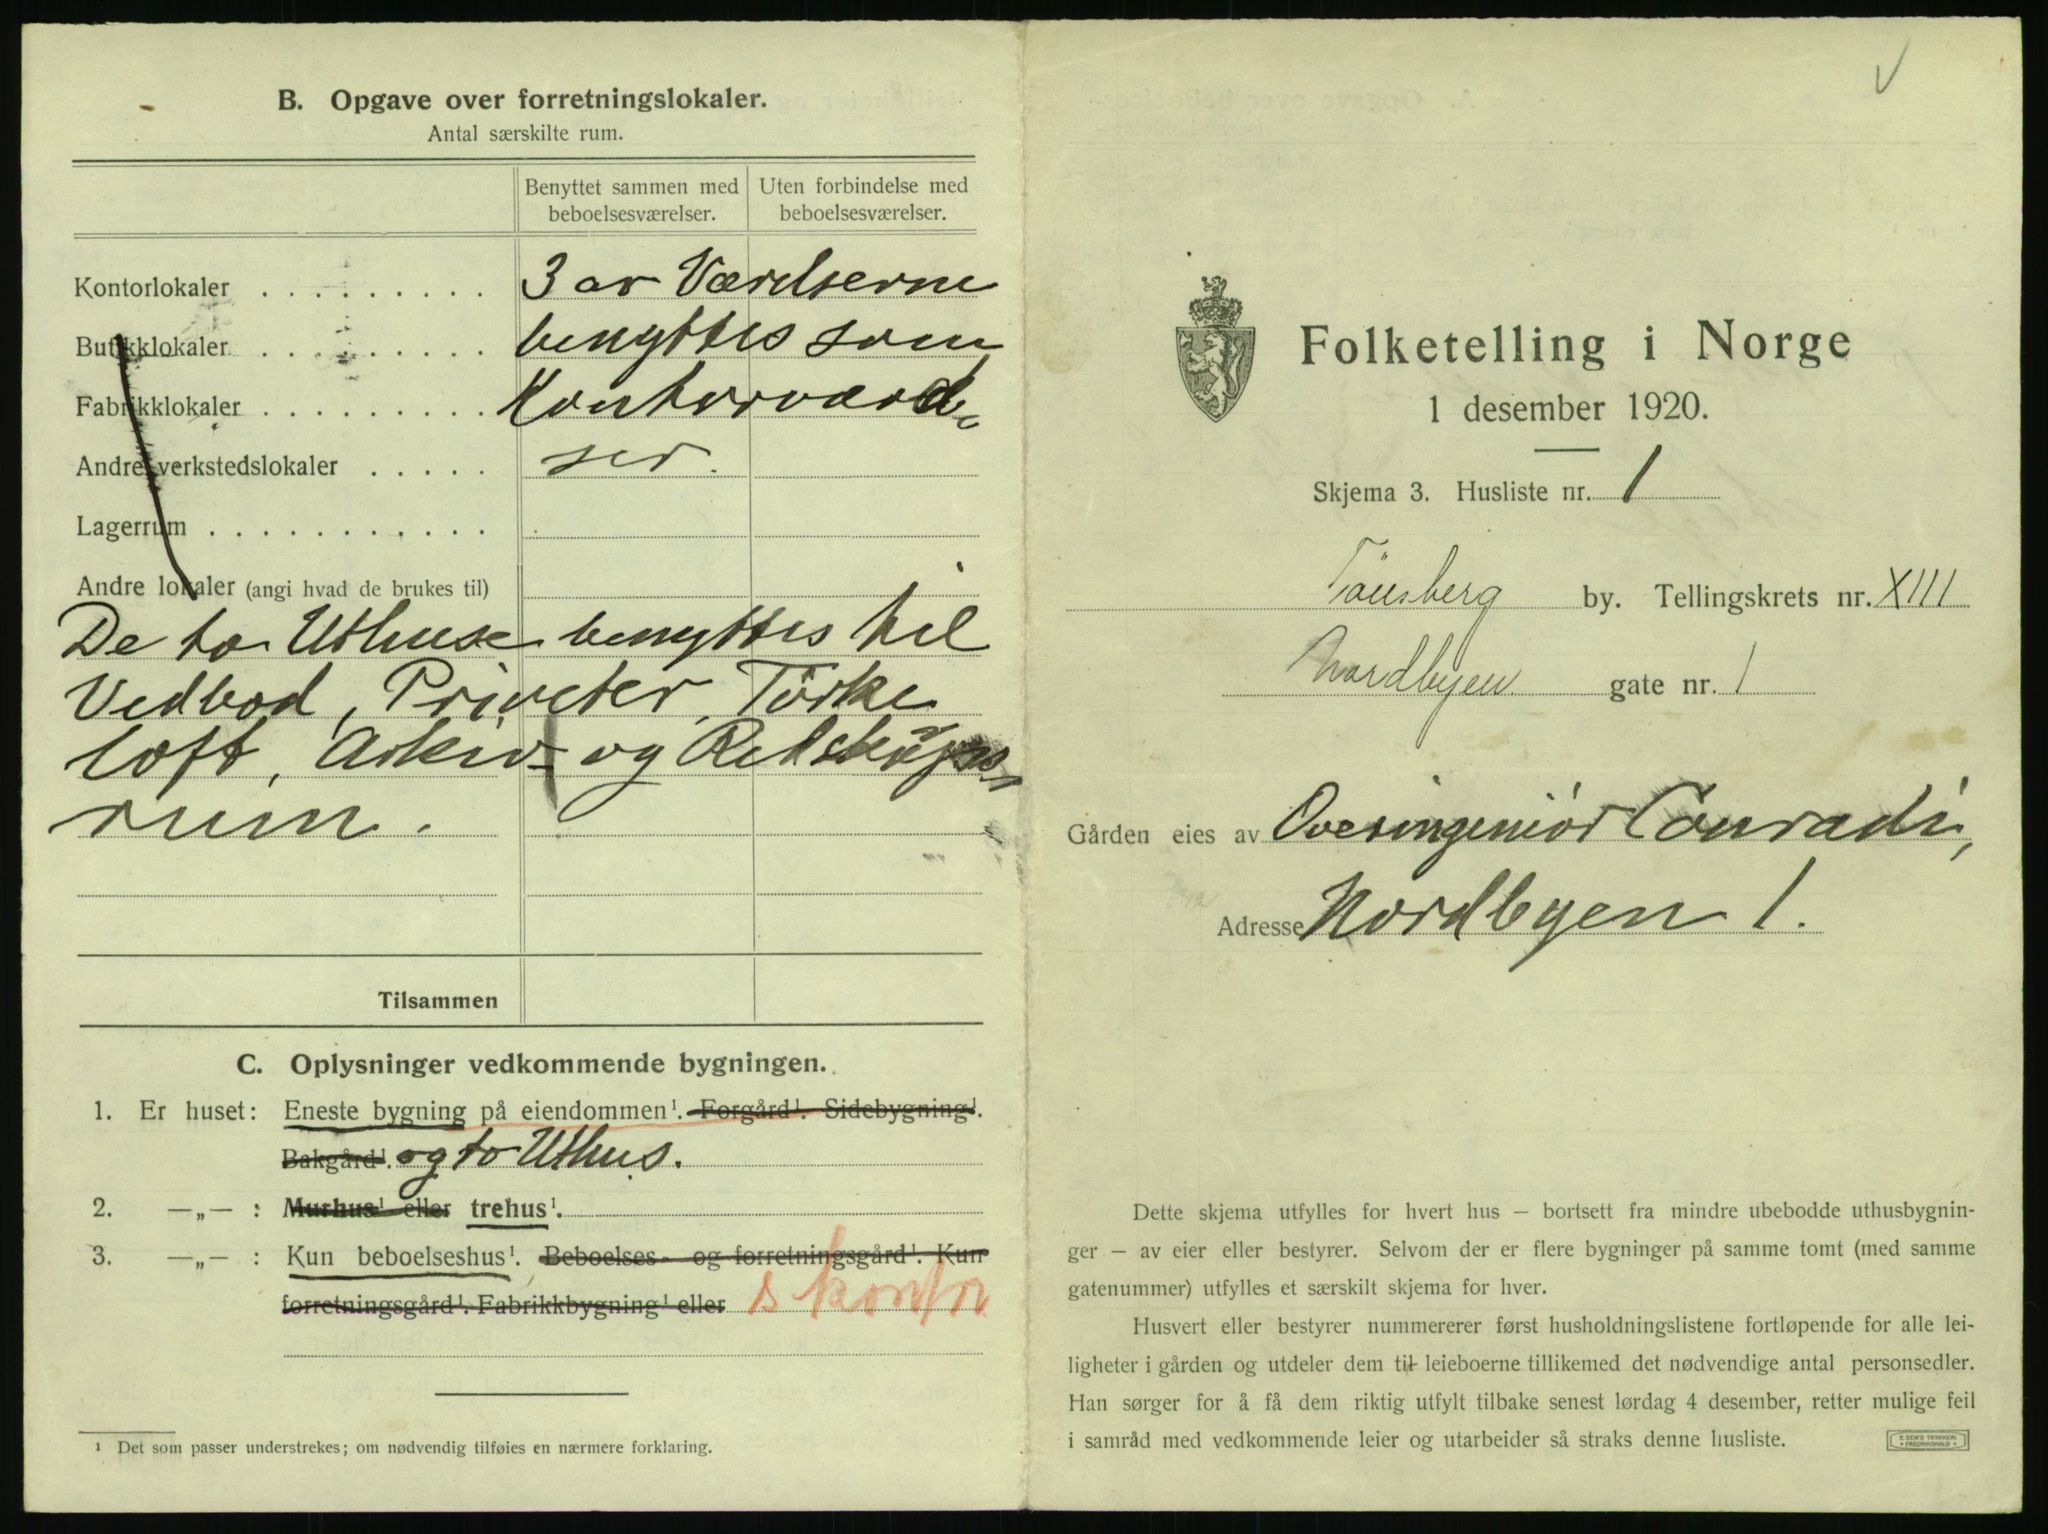 B. Opgave over forretningslokaler.
Antal særskilte rum.
Benyttet sammen med beboelsesværelser.
Uten forbindelse med beboelsesværelser.
Kontorlokaler . . . . . . . . . 3 av Værelserne
Butikklokaler . . . . . . . . . benyttes som
Fabrikklokaler . . . . . . . . . Kontorværel-
Andre verkstedslokaler . . . . . ser.
Lagerrum . . . . . . . . . . . .
Andre lokaler (angi hvad de brukes til)
De to Uthuse benyttes til
Vedbod, Priveter, Törke
loft, Arkiv- og Redskaps-
rum.
Tilsammen
C. Oplysninger vedkommende bygningen.
1. Er huset: Eneste bygning på eiendommen¹. Forgård¹. Sidebygning¹.
Bakgård¹. og to Uthus.
2. —„— : Murhus¹ eller trehus¹.
3. —„— : Kun beboelseshus¹. Beboelses- og forretningsgård¹. Kun
forretningsgård¹. Fabrikkbygning¹ eller s kontor
¹ Det som passer understrekes; om nødvendig tilføies en nærmere forklaring.
V
Folketelling i Norge
1 desember 1920.
Skjema 3. Husliste nr. 1
Tönsberg by. Tellingskrets nr. XIII
Nordbyen gate nr. 1
Gården eies av Overingeniör Conradi,
Adresse Nordbyen 1.
Dette skjema utfylles for hvert hus — bortsett fra mindre ubebodde uthusbygnin-
ger — av eier eller bestyrer. Selvom der er flere bygninger på samme tomt (med samme
gatenummer) utfylles et særskilt skjema for hver.
Husvert eller bestyrer nummererer først husholdningslistene fortløpende for alle lei-
ligheter i gården og utdeler dem til leieboerne tillikemed det nødvendige antal personsedler.
Han sørger for å få dem riktig utfylt tilbake senest lørdag 4 desember, retter mulige feil
i samråd med vedkommende leier og utarbeider så straks denne husliste.
E. SEM'S TRYKKERI
FREDRIKSHALD